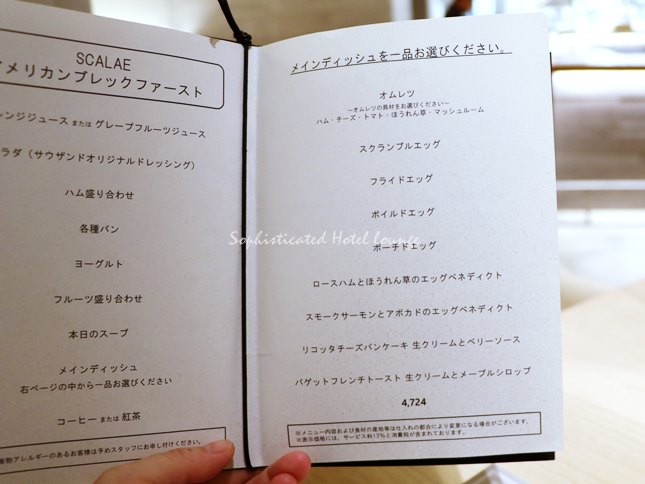 SCALAE
アメリカンブレックファースト
レンジジュース または グレープフルーツジュース
ラダ（サウザンドオリジナルドレッシング）
ハム盛り合わせ
各種パン
ヨーグルト
フルーツ盛り合わせ
本日のスープ
メインディッシュ
右ページの中から一品お選びください
コーヒー または 紅茶
産物アレルギーのあるお客様は予めスタッフにお申し付けください。
メインディッシュを一品お選びください。
オムレツ
～オムレツの具材をお選びください～
ハム・チーズ・トマト・ほうれん草・マッシュルーム
スクランブルエッグ
フライドエッグ
ボイルドエッグ
Sophisticated Hotel lounge
ポーチドエッグ
ロースハムとほうれん草のエッグベネディクト
スモークサーモンとアボカドのエッグベネディクト
リコッタチーズパンケーキ 生クリームとベリーソース
バゲットフレンチトースト 生クリームとメープルシロップ
4,724
※メニュー内容および食材の産地等は仕入れの都合により変更になる場合がございます。
※表示価格には、サービス料13%と消費税が含まれております。